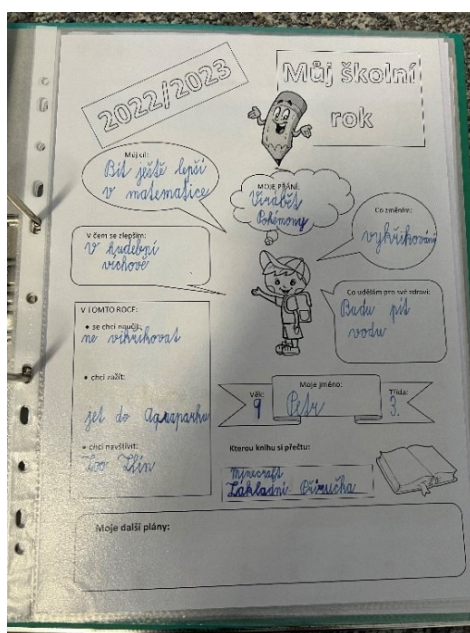 2022/2023
Můj školní
rok
Můj cíl:
Bít ještě lepší
v matematice
MOJE PŘÁNÍ:
Virábět
Pokémony
Co změním:
vykřikování
V čem se zlepším:
V hudební
víchově
Co udělám pro své zdraví:
Budu pít
vodu
V TOMTO ROCE:
• se chci naučit:
ne vikřikovat
• chci zažít:
jet do Aquaparku
• chci navštívit:
Zoo Zlín
Věk:
9
Moje jméno:
Petr
Třída:
3.
Kterou knihu si přečtu:
Minecraft
Základní Příručka
Moje další plány: